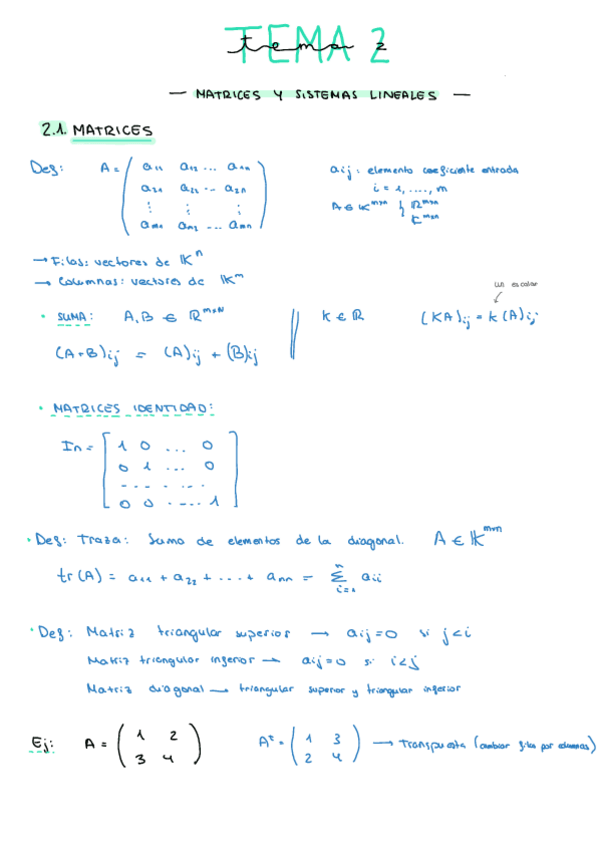 TEMA 2
tema 2
— MATRICES Y SISTEMAS LINEALES —
2.1. MATRICES
Def: A = ( a11 a12 ... a1n
a21 a22 ... a2n
⋮ ⋮ ⋮
am1 am2 ... amn )
aij: elemento coeficiente entrada
i = 1, ...., m
A ∈ K^mxn } R^mxn
C^mxn
→ Filas: vectores de K^n
→ Columnas: vectores de K^m
un escalar
• SUMA: A, B ∈ R^mxn || K ∈ R (KA)ij = k(A)ij
(A+B)ij = (A)ij + (B)ij
• MATRICES IDENTIDAD:
In = [ 1 0 ... 0
0 1 ... 0
... ... ...
0 0 .... 1 ]
• Def: Traza: Suma de elementos de la diagonal. A ∈ K^mxn
tr(A) = a11 + a22 + ... + ann = Σ(i=1, n) aii
• Def: Matriz triangular superior → aij=0 si j<i
Matriz triangular inferior → aij=0 si i<j
Matriz diagonal → triangular superior y triangular inferior
Ej: A = ( 1 2 A^t = ( 1 3 → Transpuesta (cambiar filas por columnas)
3 4 ) 2 4 )